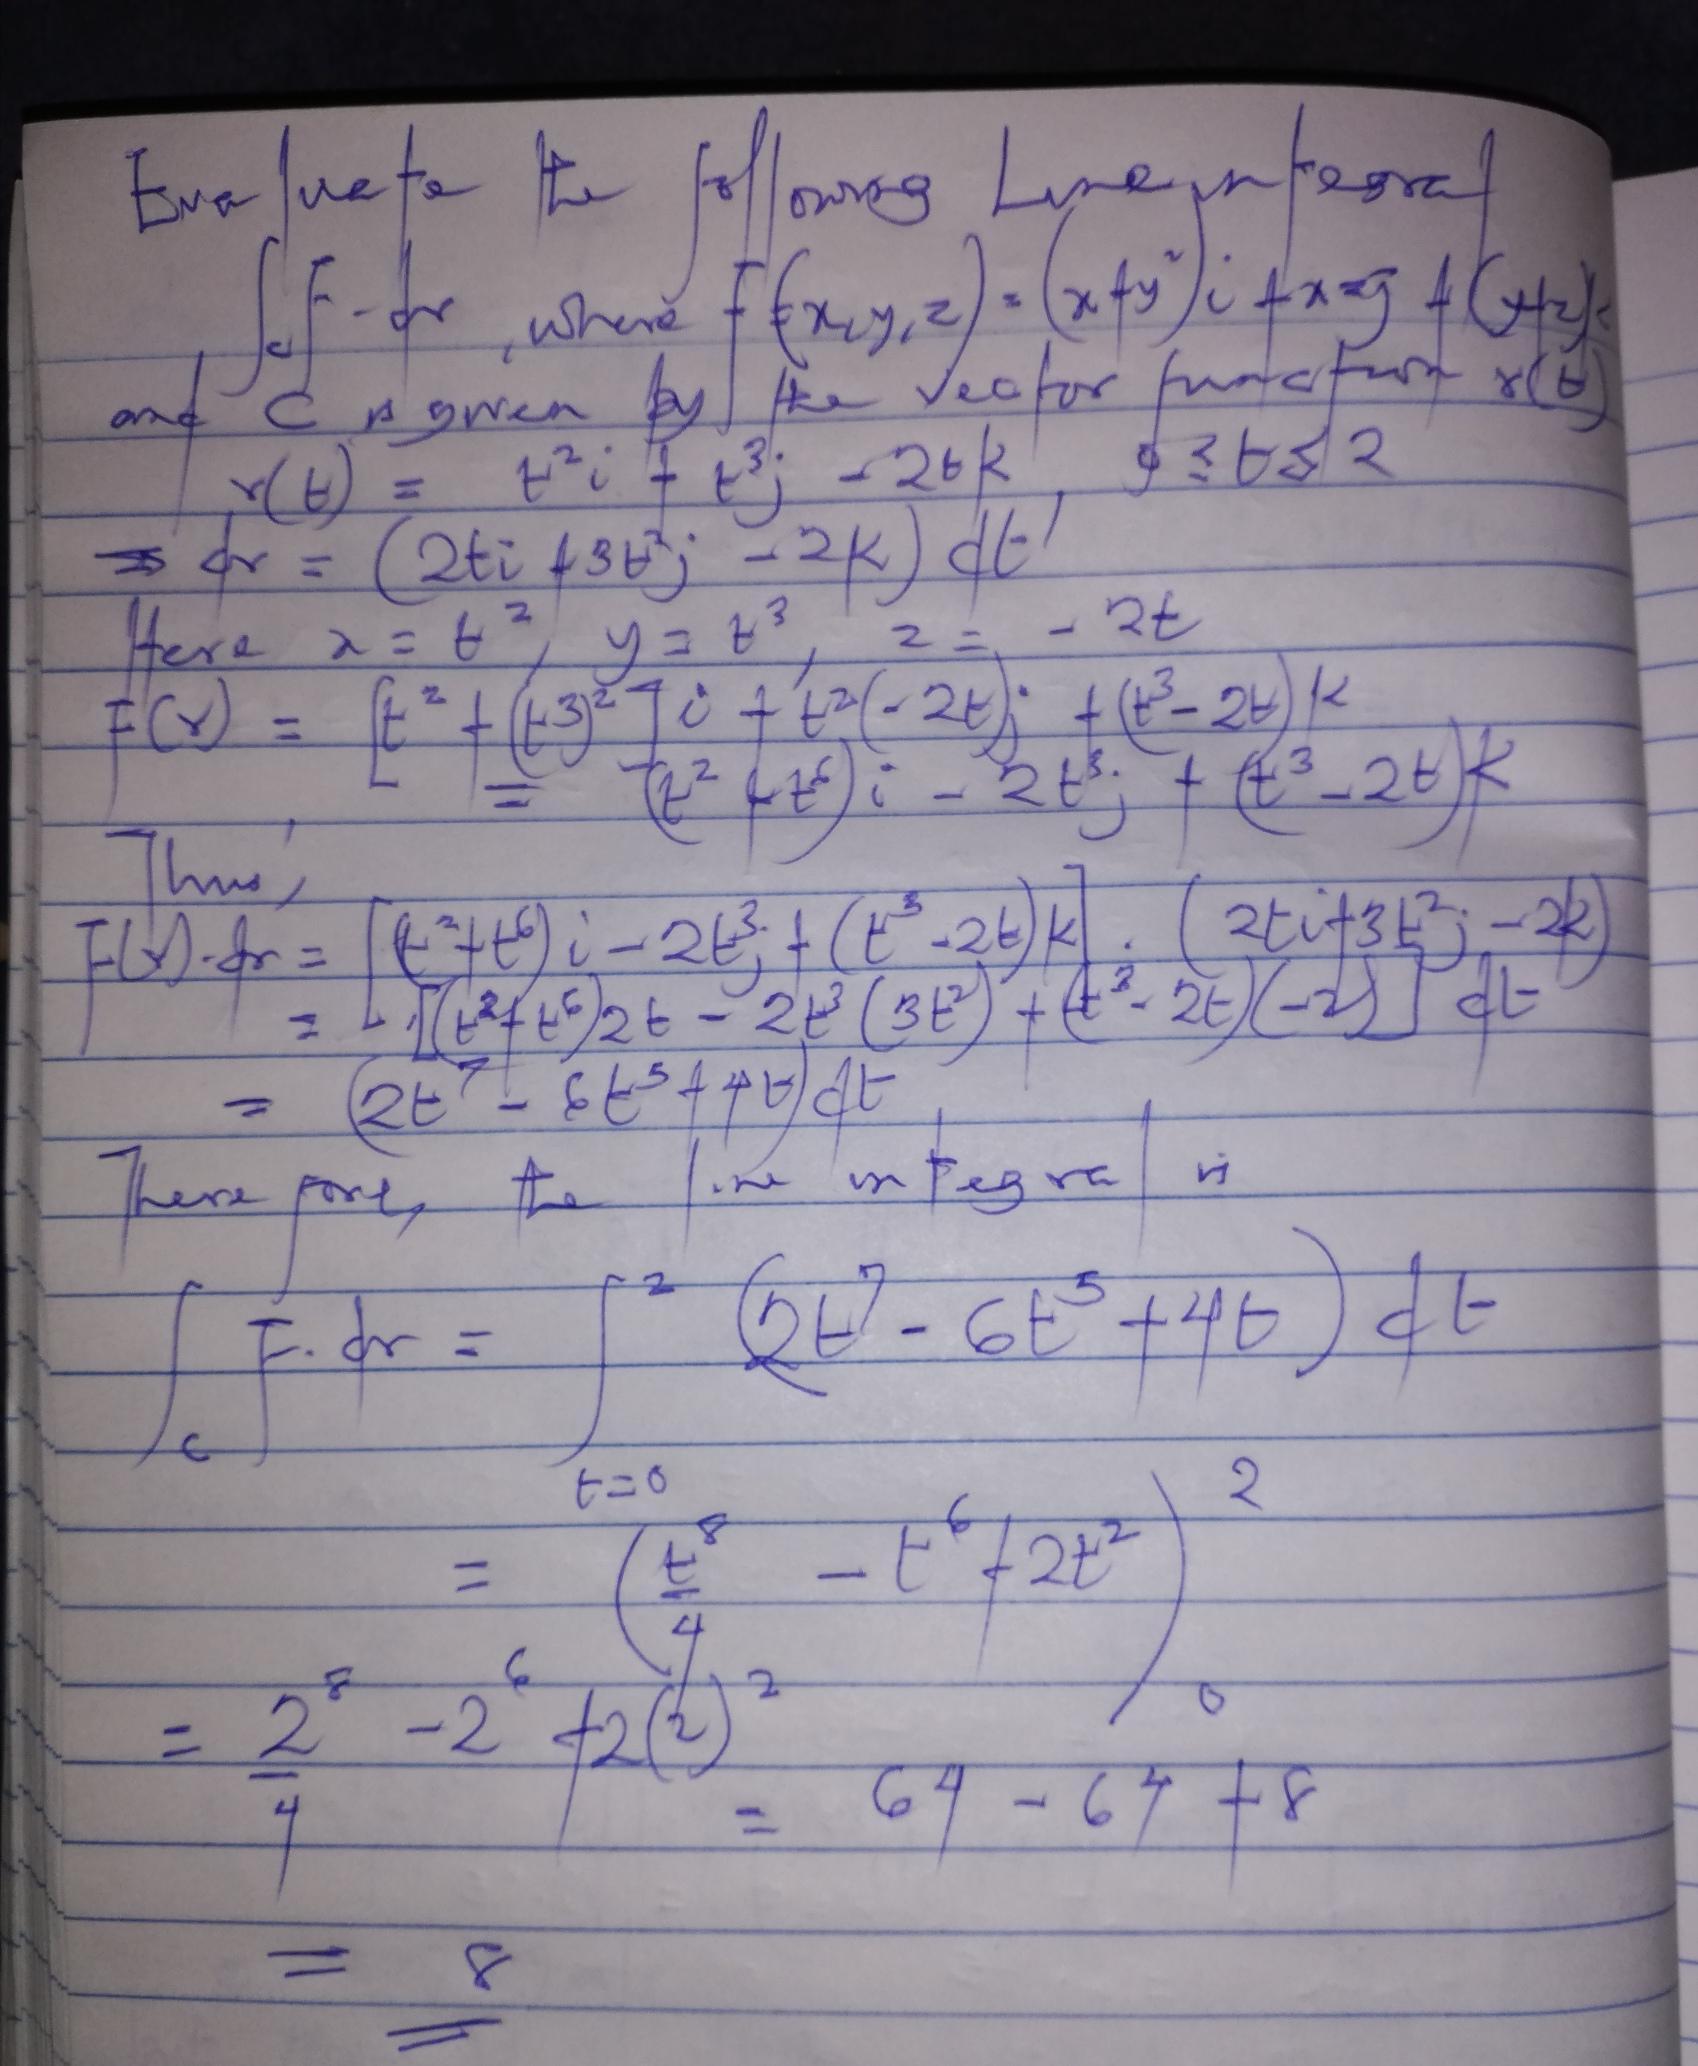 Evaluate the following Line integral
∫_C F · dr, where F(x, y, z) = (x + y²)i + xzj + (y+z)k
and C is given by the vector function r(t)
r(t) = t²i + t³j - 2tk, 0 ≤ t ≤ 2
⇒ dr = (2ti + 3t²j - 2k) dt
Here x = t², y = t³, z = - 2t
F(r) = [t² + (t³)²]i + t²(-2t)j + (t³ - 2t)k
= (t² + t⁶)i - 2t³j + (t³ - 2t)k
Thus,
F(r)·dr = [(t² + t⁶)i - 2t³j + (t³ - 2t)k] · (2ti + 3t²j - 2k)
= [(t² + t⁶)2t - 2t³(3t²) + (t³ - 2t)(-2)] dt
= (2t⁷ - 6t⁵ + 4t)dt
Therefore, the line integral is
∫_C F·dr = ∫_{t=0}^{2} (2t⁷ - 6t⁵ + 4t) dt
= (t⁸/4 - t⁶ + 2t²)_0^2
= 2⁸/4 - 2⁶ + 2(2)²
= 64 - 64 + 8
= 8